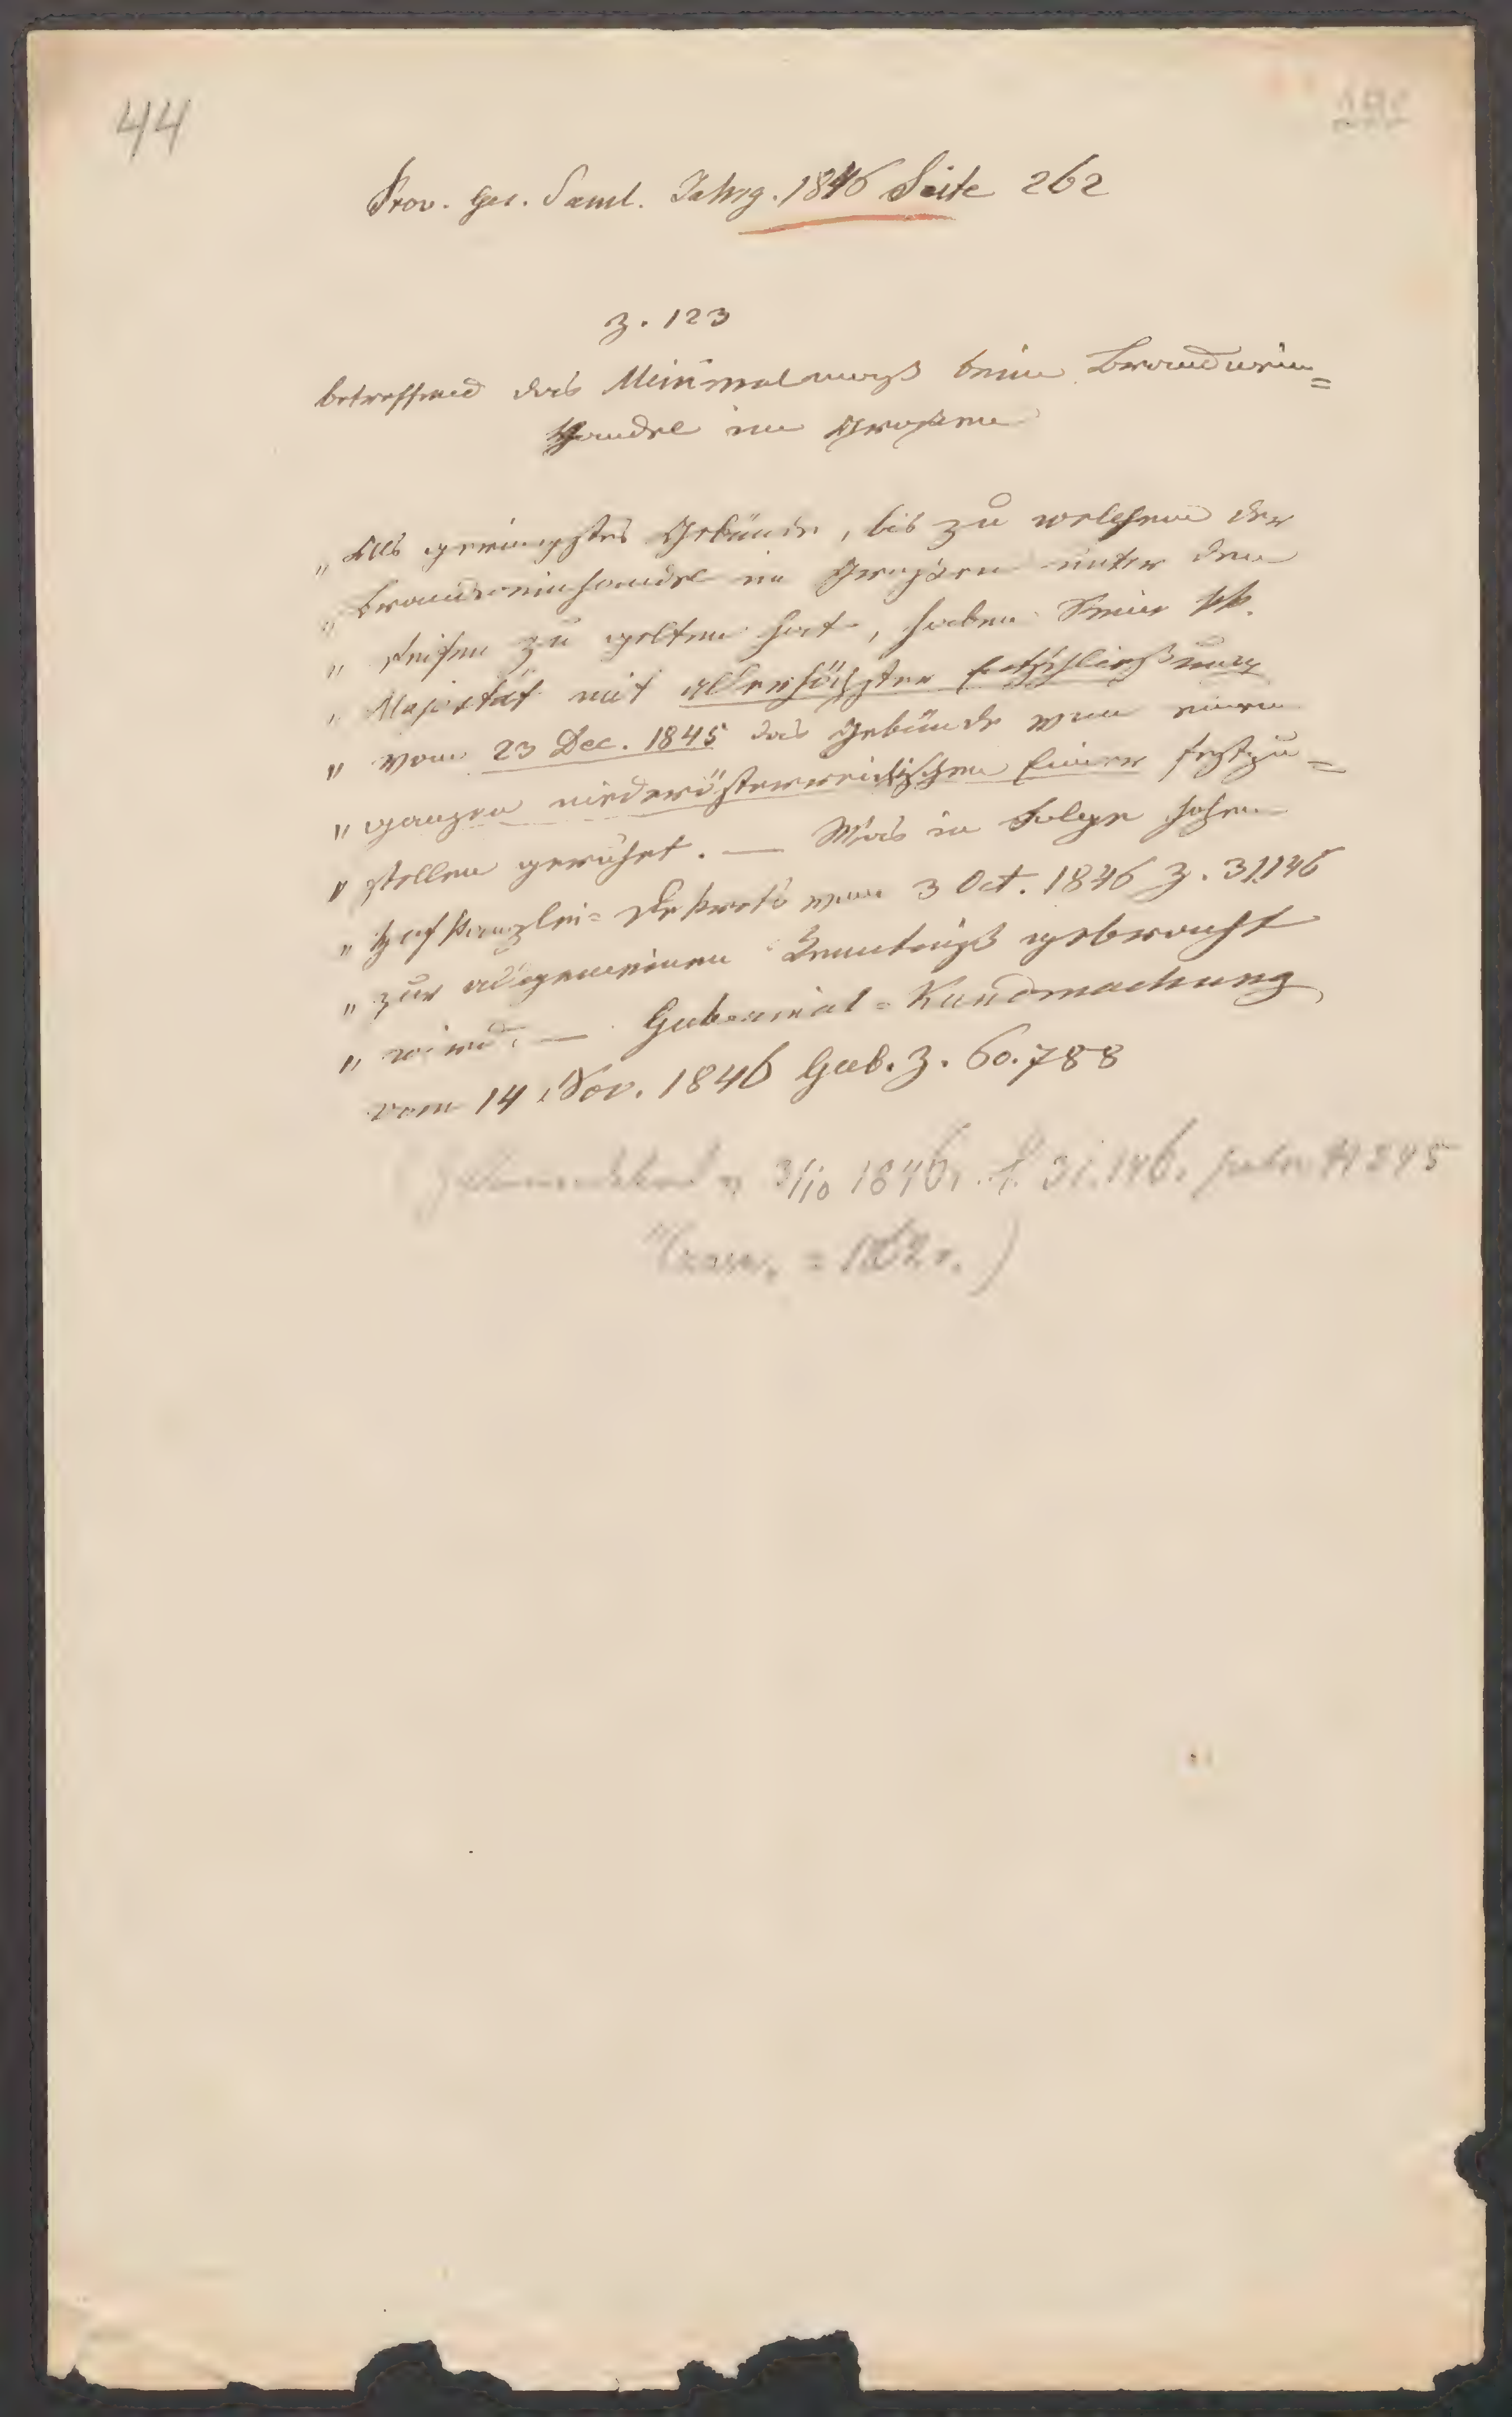 44
Prov. Ges. Saml. Jahrg. 1846 Seite 262
Z. 123
betreffend das Minimalmaß beim Brandwein=
Handel im Großen
„ Als geringstes Gebünde, bis zu welchem der
„ Brandweinhandel im Großen unter den
„ zu gelten hat, haben Seine kk.
„ Majestät mit allerhöchster Entschließung
„ vom 23 Dec. 1845 das Gebünde von einem
„ ganzen niederösterreichischen Eimer festzu=
„ stellen geruhet. — Was in Folge hohen
„ Hofkanzlei= Dekrets vom 3 Oct. 1846 Z. 31.146
„ zur allgemeinen Kenntniß gebracht
„ wird. — Gubernial= Kundmachung
vom 14 Nov. 1846 Gub. Z. 60.788
3/10 1846 31.146.